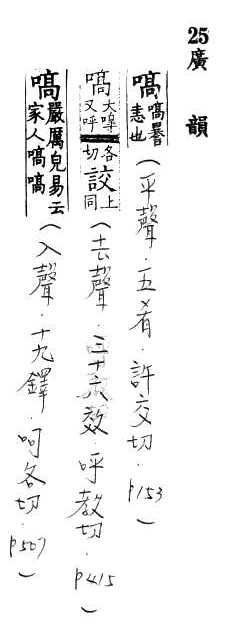 25廣韻
嗃嗃暴恚也(平聲.五肴.許交切.p153)
嗃大嘷又呼各切詨上同(去聲.三十六效.呼教切.p415)
嗃嚴厲皃易云家人嗃嗃(入聲.十九鐸.呵各切.p507)